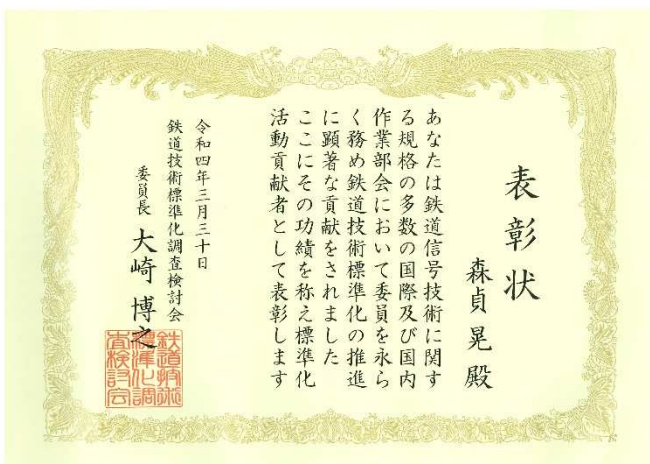 表彰状
森貞晃殿
あなたは鉄道信号技術に関す
る規格の多数の国際及び国内
作業部会において委員を永ら
く務め鉄道技術標準化の推進
に顕著な貢献をされました
ここにその功績を称え標準化
活動貢献者として表彰します
令和四年三月三十日
鉄道技術標準化調査検討会
委員長 大崎博之
鉄道技術
標準化調
査検討会